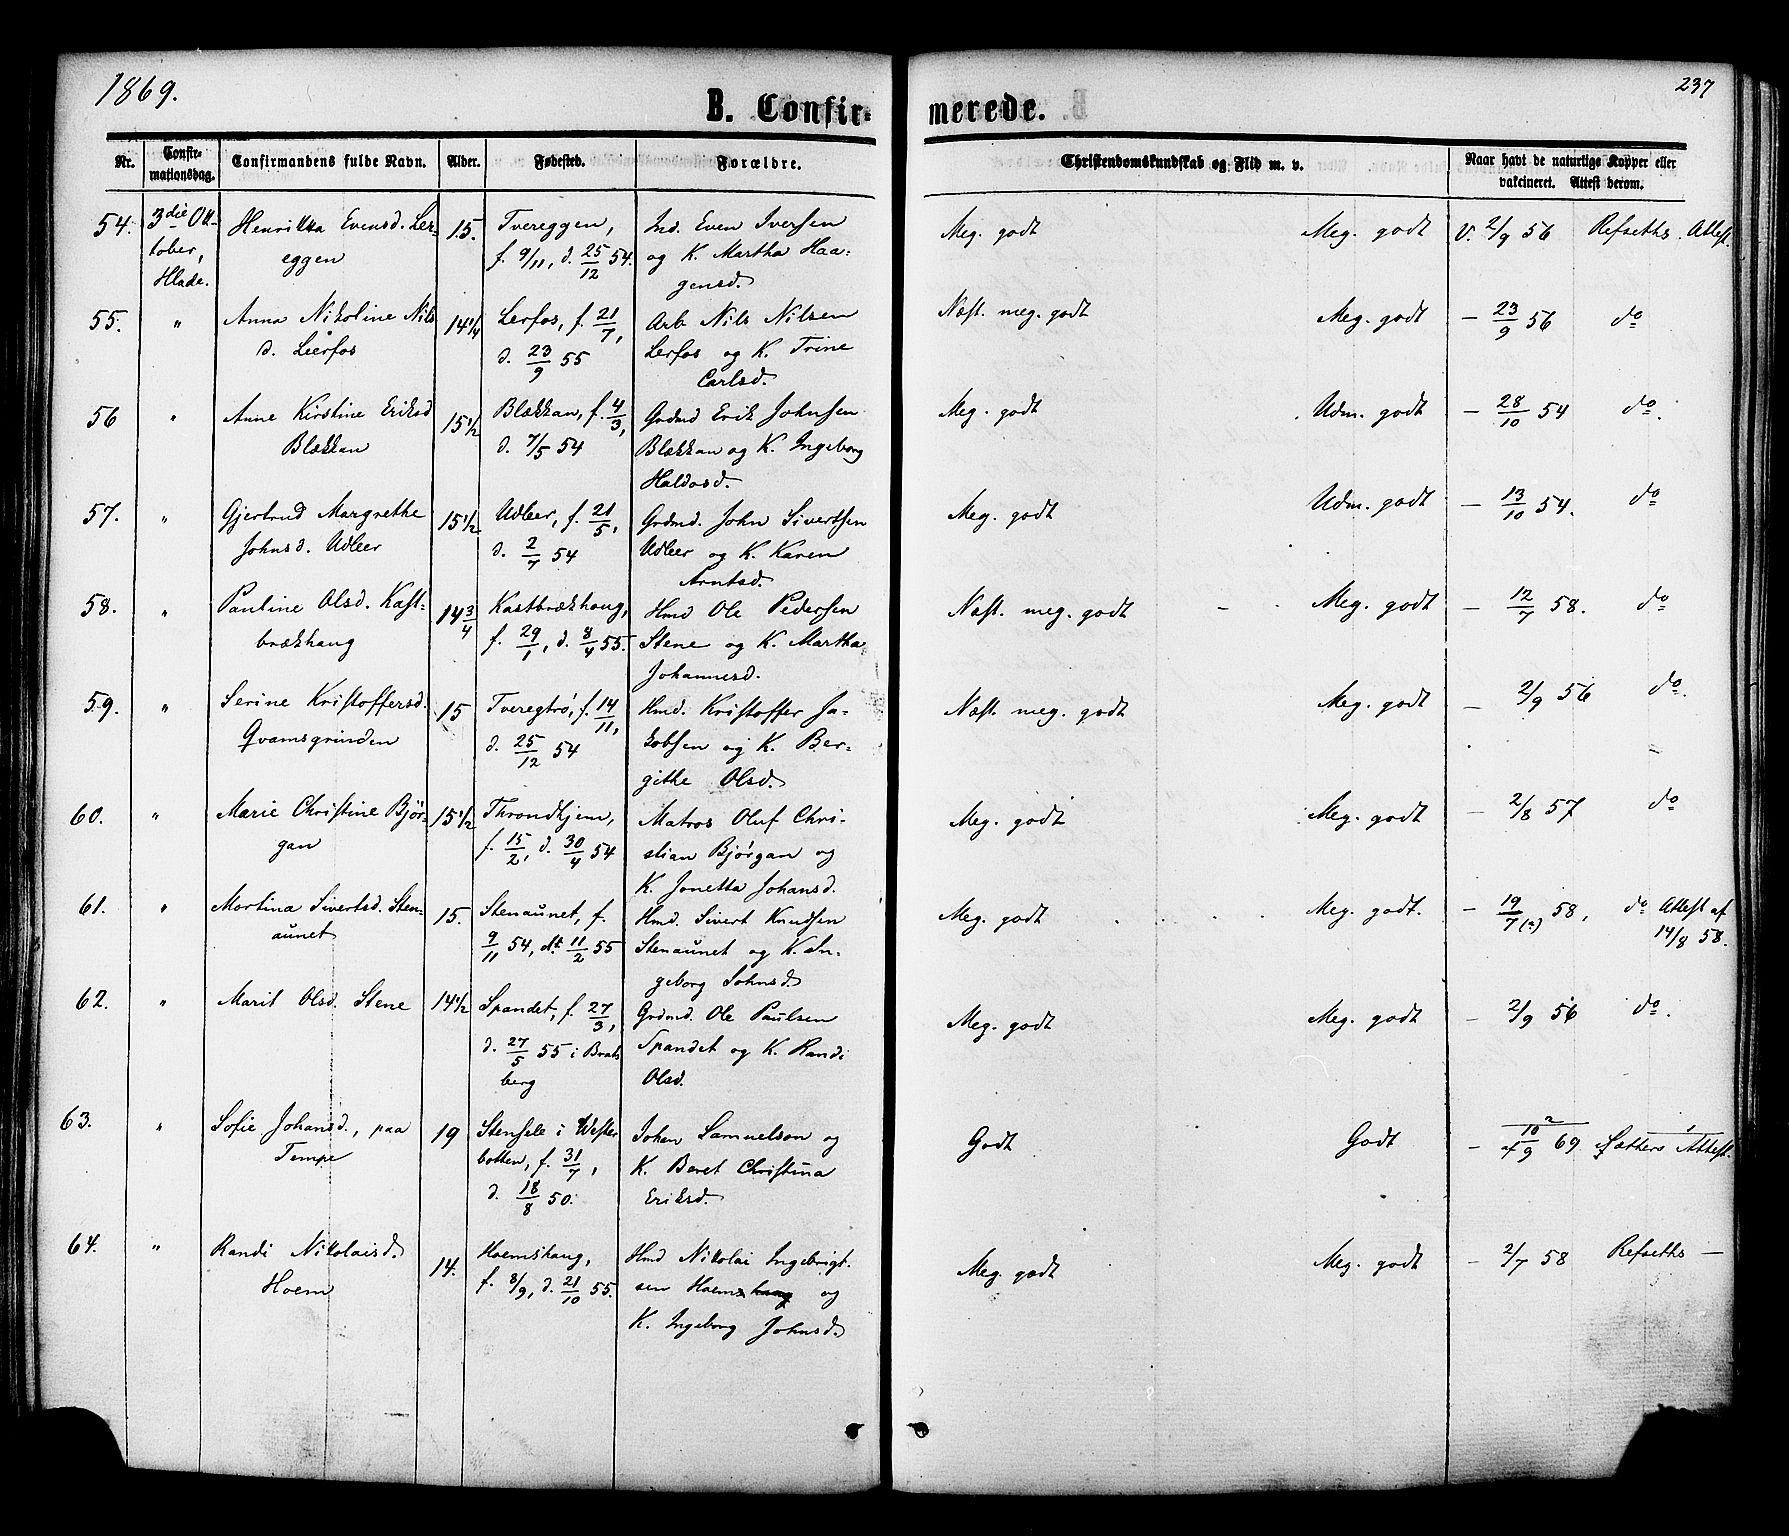 1869.
237
B. Confirmerede.
Nr.
Confirmationsdag.
Confirmandens fulde Navn.
Alder.
Fødested.
Forældre.
Christendomskundskab og Flid m. v.
Naar havt de naturlige Kopper eller vakcineret. Attest derom.
54. 3die Oktober, Hlade. Henrikka Evensd. Lereggen 15. Tvereggen, f. 9/11, d. 25/12 54. Ind. Even Iversen og K. Martha Haagensd. Meg. godt Meg. godt V. 2/9 56 Refseths Attest.
55. " Anna Nikoline Nilsd. Leerfos 14 1/4 Lerfos, f. 21/7, d. 23/9 55 Arb. Nils Nilsen Lerfos og K. Trine Carlsd. Næst. meg. godt Meg. godt – 23/9 56 do
56 " Anne Kirstine Eriksd Blækkan 15 1/2 Blækkan, f. 4/3, d. 7/5 54 Grdmd Erik Johnsen Blækkan og K. Ingeborg Haldosd. Meg. godt Udm. godt – 28/10 54 do.
57. " Gjertrud Margrethe Johnsd. Udleer 15 1/2 Udleer, f. 21/5, d. 2/7 54 Grdmd. John Sivertsen Udleer og K. Karen Arntsd. Meg. godt Udm. godt – 13/10 54. do
58. " Pauline Olsd. Kastbrækhaug 14 3/4 Kastbrækhaug, f. 29/1, d. 8/4 55. Hmd Ole Pedersen Stene og K. Martha Johannesd. Næst. meg. godt Meg. godt – 12/7 58. do
59. " Serine Kristoffersd. Qvamsgrinden 15 Tveregtrø, f. 14/11, d. 25/12 54 Hmd. Kristoffer Jakobsen og K. Bergithe Olsd. Næst. meg. godt Meg. godt – 2/9 56 do.
60. " Marie Christine Bjørgan 15 1/2 Throndhjem, f. 15/2, d. 30/4 54 Matros Oluf Christian Bjørgan og K. Jonetta Johansd. Meg. godt Meg. godt – 2/8 57 do
61. " Martina Sivertsd. Stenaunet 15. Stenaunet, f. 9/11 54, dt. 11/2 55 Hmd. Sivert Knudsen Stenaunet og K. Ingeborg Johnsd. Meg. godt Meg. godt. – 19/7 (?) 58, do Attest af 14/8 58.
62. " Marit Olsd. Stene 14 1/2 Spandet, f. 27/3, d. 27/5 55 i Bratsberg Grdmd. Ole Paulsen Spandet og K. Randi Olsd. Meg. godt Meg. godt – 2/9 56 do.
63. " Sofie Johansd., paa Tempe 19 Stensele i Westerbotten, f. 31/7, d. 18/8 50. Johan Samuelson og K. Beret Christina Eriksd. Godt Godt – af 10/9 69 Sætters Attest.
64. " Randi Nikolaisd. Hoem 14. Hoemshaug, f. 8/9, d. 21/10 55. Hmd Nikolai Ingebrigtsen Hoemshaug og K. Ingeborg Johnsd. Meg. godt Meg. godt – 2/7 58 Refseths –